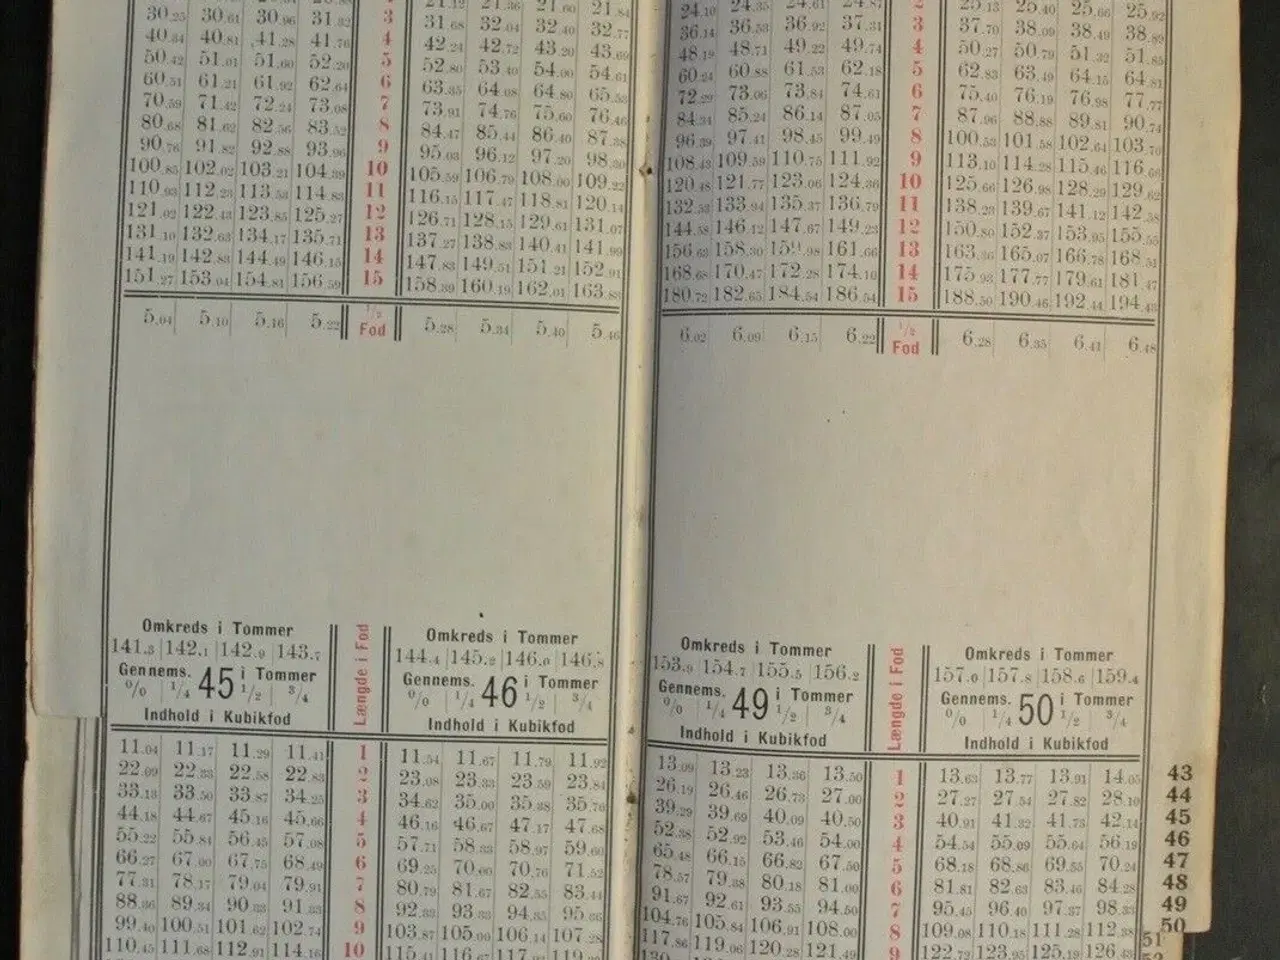 30.25 30.61 30.96 31.32 3 31.68 32.04 32.40 32.77
40.34 40.81 41.28 41.76 4 42.24 42.72 43.20 43.69
50.42 51.01 51.60 52.20 5 52.80 53.40 54.00 54.61
60.51 61.21 61.92 62.64 6 63.35 64.08 64.80 65.53
70.59 71.42 72.24 73.08 7 73.91 74.76 75.60 76.46
80.68 81.62 82.56 83.52 8 84.47 85.44 86.40 87.38
90.76 91.82 92.88 93.96 9 95.03 96.12 97.20 98.30
100.85 102.02 103.21 104.39 10 105.59 106.79 108.00 109.22
110.93 112.23 113.53 114.83 11 116.15 117.47 118.81 120.14
121.02 122.43 123.85 125.27 12 126.71 128.15 129.61 131.07
131.10 132.63 134.17 135.71 13 137.27 138.83 140.41 141.99
141.19 142.83 144.49 146.15 14 147.83 149.51 151.21 152.91
151.27 153.04 154.81 156.59 15 158.39 160.19 162.01 163.83
5.04 5.10 5.16 5.22 1/2 Fod 5.28 5.34 5.40 5.46
Omkreds i Tommer
141.3 142.1 142.9 143.7
Gennems. 45 i Tommer
0/0 1/4 1/2 3/4
Indhold i Kubikfod
Længde i Fod
Omkreds i Tommer
144.4 145.2 146.0 146.8
Gennems. 46 i Tommer
0/0 1/4 1/2 3/4
Indhold i Kubikfod
11.04 11.17 11.29 11.41 1 11.54 11.67 11.79 11.92
22.09 22.33 22.58 22.83 2 23.08 23.33 23.59 23.84
33.13 33.50 33.87 34.25 3 34.62 35.00 35.38 35.76
44.18 44.67 45.16 45.66 4 46.16 46.67 47.17 47.68
55.22 55.84 56.45 57.08 5 57.71 58.33 58.97 59.60
66.27 67.00 67.75 68.49 6 69.25 70.00 70.76 71.52
77.31 78.17 79.04 79.91 7 80.79 81.67 82.55 83.44
88.36 89.34 90.33 91.33 8 92.33 93.33 94.35 95.36
99.40 100.51 101.62 102.74 9 103.87 105.00 106.14 107.28
110.45 111.68 112.91 114.16 10 115.41 116.67 117.92 119.20
24.10 24.35 24.61 24.87 2 25.13 25.40 25.66 25.92
36.14 36.53 36.92 37.31 3 37.70 38.09 38.49 38.89
48.19 48.71 49.22 49.74 4 50.27 50.79 51.32 51.85
60.24 60.88 61.53 62.18 5 62.83 63.49 64.15 64.81
72.29 73.06 73.84 74.61 6 75.40 76.19 76.98 77.77
84.34 85.24 86.14 87.05 7 87.96 88.88 89.81 90.74
96.39 97.41 98.45 99.49 8 100.53 101.58 102.64 103.70
108.43 109.59 110.75 111.92 9 113.10 114.28 115.46 116.66
120.48 121.77 123.06 124.36 10 125.66 126.98 128.29 129.62
132.53 133.94 135.37 136.79 11 138.23 139.67 141.12 142.58
144.58 146.12 147.67 149.23 12 150.80 152.37 153.95 155.55
156.63 158.30 159.98 161.66 13 163.36 165.07 166.78 168.51
168.68 170.47 172.28 174.10 14 175.93 177.77 179.61 181.47
180.72 182.65 184.54 186.54 15 188.50 190.46 192.44 194.43
6.02 6.09 6.15 6.22 1/2 Fod 6.28 6.35 6.41 6.48
Omkreds i Tommer
153.9 154.7 155.5 156.2
Gennems. 49 i Tommer
0/0 1/4 1/2 3/4
Indhold i Kubikfod
Længde i Fod
Omkreds i Tommer
157.0 157.8 158.6 159.4
Gennems. 50 i Tommer
0/0 1/4 1/2 3/4
Indhold i Kubikfod
13.09 13.23 13.36 13.50 1 13.63 13.77 13.91 14.05
26.19 26.46 26.73 27.00 2 27.27 27.54 27.82 28.10
39.29 39.69 40.09 40.50 3 40.91 41.32 41.73 42.14
52.38 52.92 53.46 54.00 4 54.54 55.09 55.64 56.19
65.48 66.15 66.82 67.50 5 68.18 68.86 69.55 70.24
78.57 79.38 80.18 81.00 6 81.81 82.63 83.46 84.28
91.67 92.61 93.55 94.50 7 95.45 96.40 97.37 98.33
104.76 105.84 106.91 108.00 8 109.08 110.18 111.28 112.38
117.86 119.06 120.28 121.49 9 122.72 123.95 125.19 126.43
43
44
45
46
47
48
49
50
51